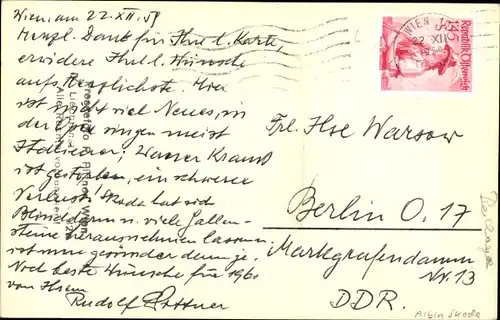 Wien, am 22. XII. 59
Herzl. Dank für Ihre l. Karte,
erwidere Ihre l. Wünsche
aufs Herzlichste. Hier
ist nicht viel Neues, in
der singen meist
Italiener; Werner Krauss
ist gestorben, ein schwerer
Verlust! Skoda hat sich
Blinddarm u. viele Gallen-
steine herausnehmen lassen u.
ist nun gesünder denn je.
Noch beste Wünsche für 1960
von Ihrem
Rudolf
WIEN
22. XII
Republik Österreich
S 1.45
Frl. Ilse Warsow
Berlin O. 17
Markgrafendamm
Nr. 13
DDR.
Albin Skoda